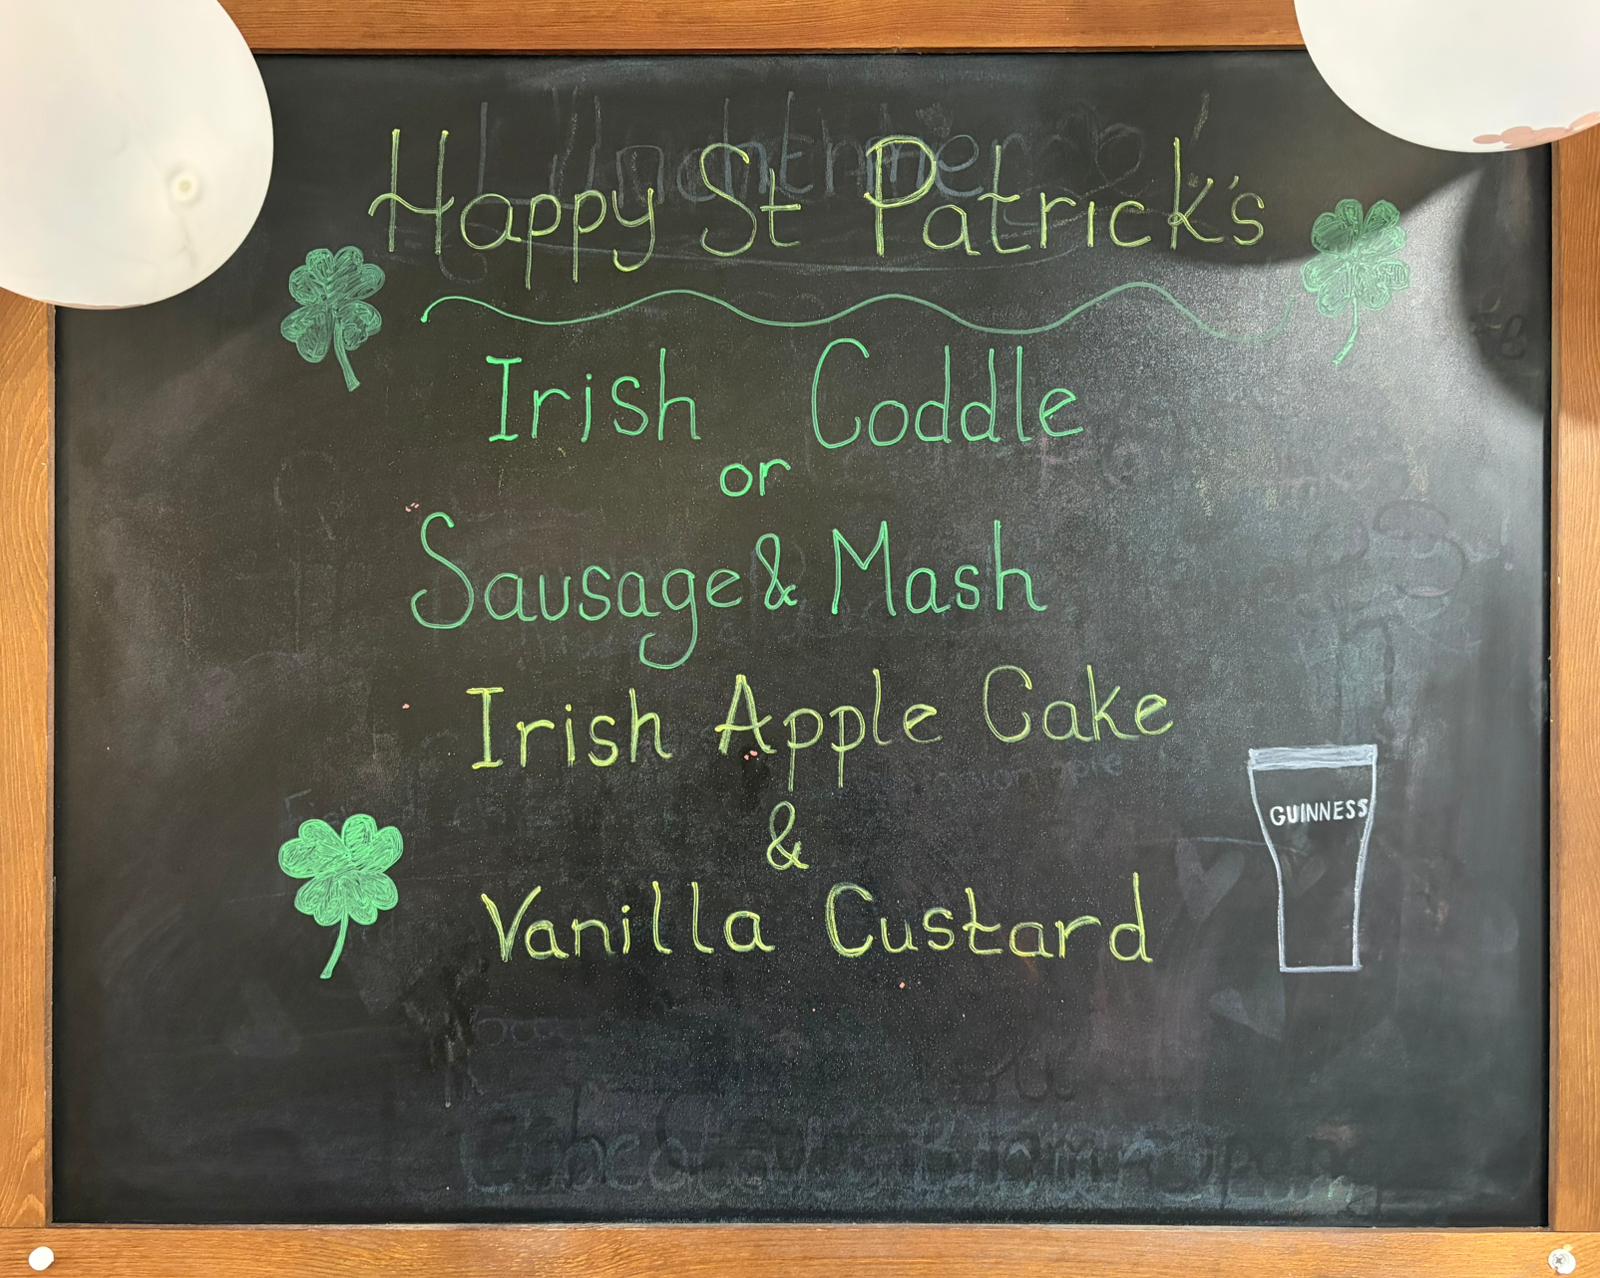 Happy St Patrick's
Irish Coddle
or
Sausage & Mash
Irish Apple Cake
&
Vanilla Custard
GUINNESS